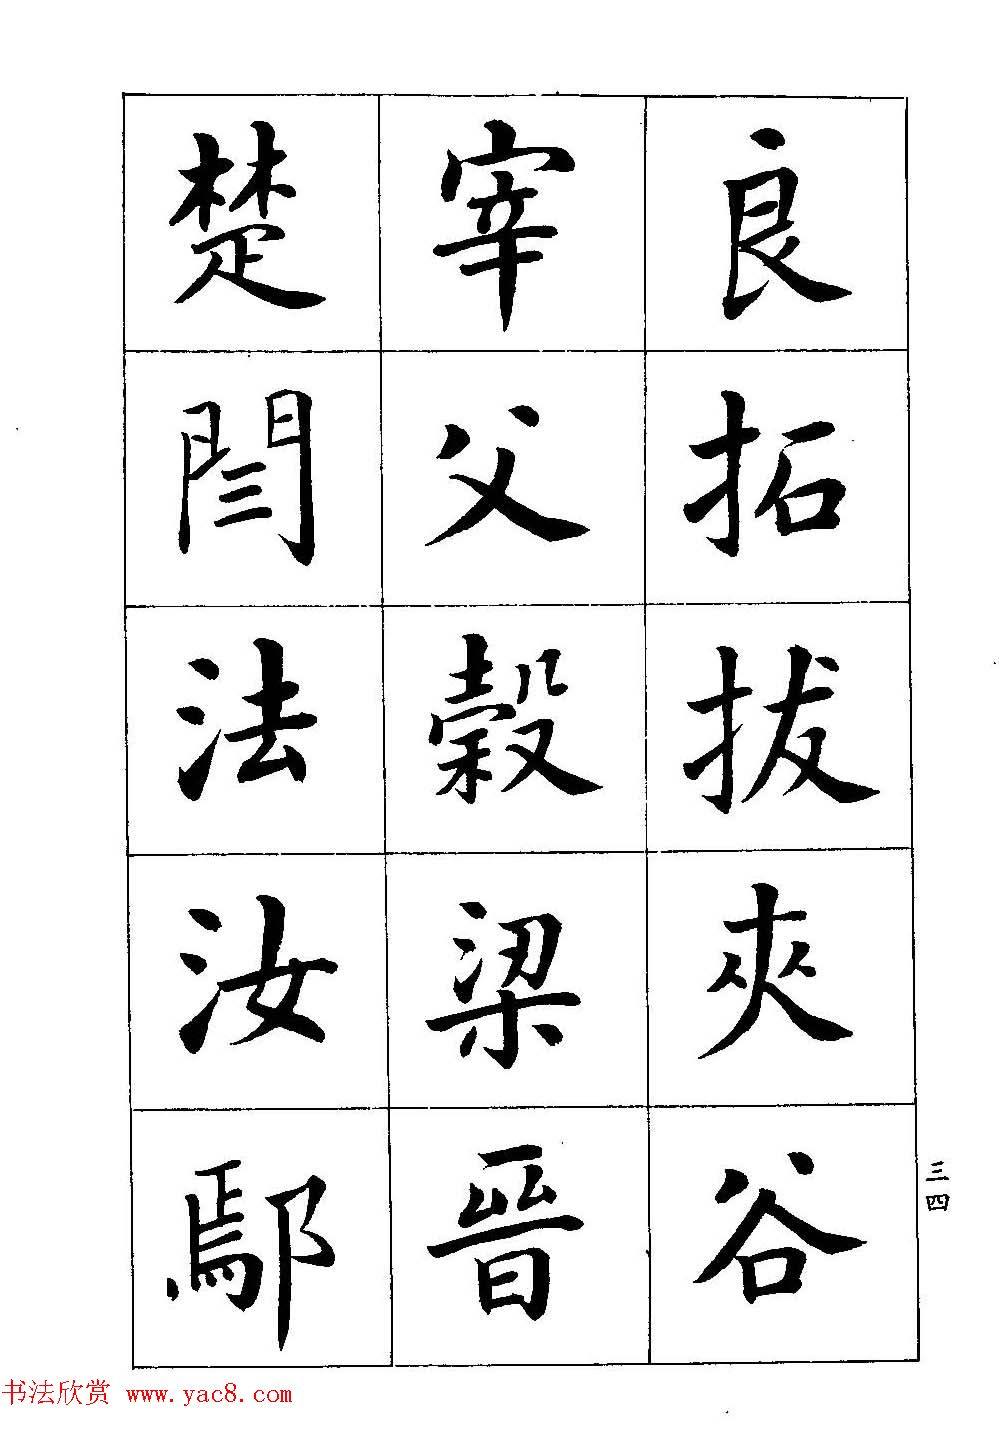 良拓拔夾谷
宰父穀梁晉
楚閆法汝鄢
三四
书法欣赏 www.yac8.com